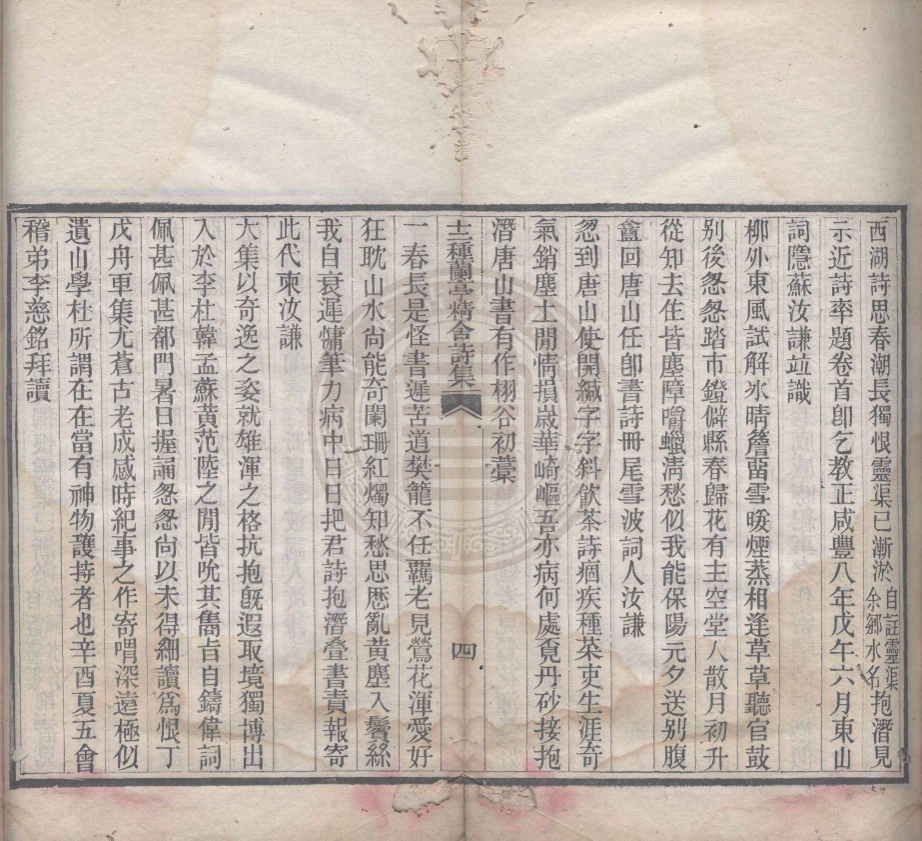 西湖詩思春潮長獨恨靈渠已漸淤自註靈渠余鄉水名抱潛見
示近詩率題卷首卽乞教正咸豐八年戊午六月東山
詞隱蘇汝謙竝識
柳外東風試解冰晴簷畱雪暖煙蒸相逢草草聽官鼓
別後怱怱踏市鐙僻縣春歸花有主空堂人散月初升
從知去住皆塵障嚼蠟淸愁似我能保陽元夕送别腹
盦回唐山任卽書詩冊尾雪波詞人汝謙
忽到唐山使開緘字字斜飮茶詩痼疾種菜吏生涯奇
氣銷塵土閒情損歲華崎嶇吾亦病何處覓丹砂接抱
潛唐山書有作栩谷初藁
十二種蘭亭精舍詩集
四
一春長是怪書遲苦道樊籠不任羈老見鶯花渾愛好
狂耽山水尙能奇闌珊紅燭知愁思歷亂黃塵入鬢絲
我自衰遲慵筆力病中日日把君詩抱潛叠書責報寄
此代柬汝謙
大集以奇逸之姿就雄渾之格抗抱旣遐取境獨博出
入於李杜韓孟蘇黃范陸之閒皆吮其雋旨自鑄偉詞
佩甚佩甚都門暑日握誦怱怱尙以未得細讀爲恨丁
戊舟車集尤蒼古老成感時紀事之作寄喟深遠極似
遺山學杜所謂在在當有神物護持者也辛酉夏五會
稽弟李慈銘拜讀